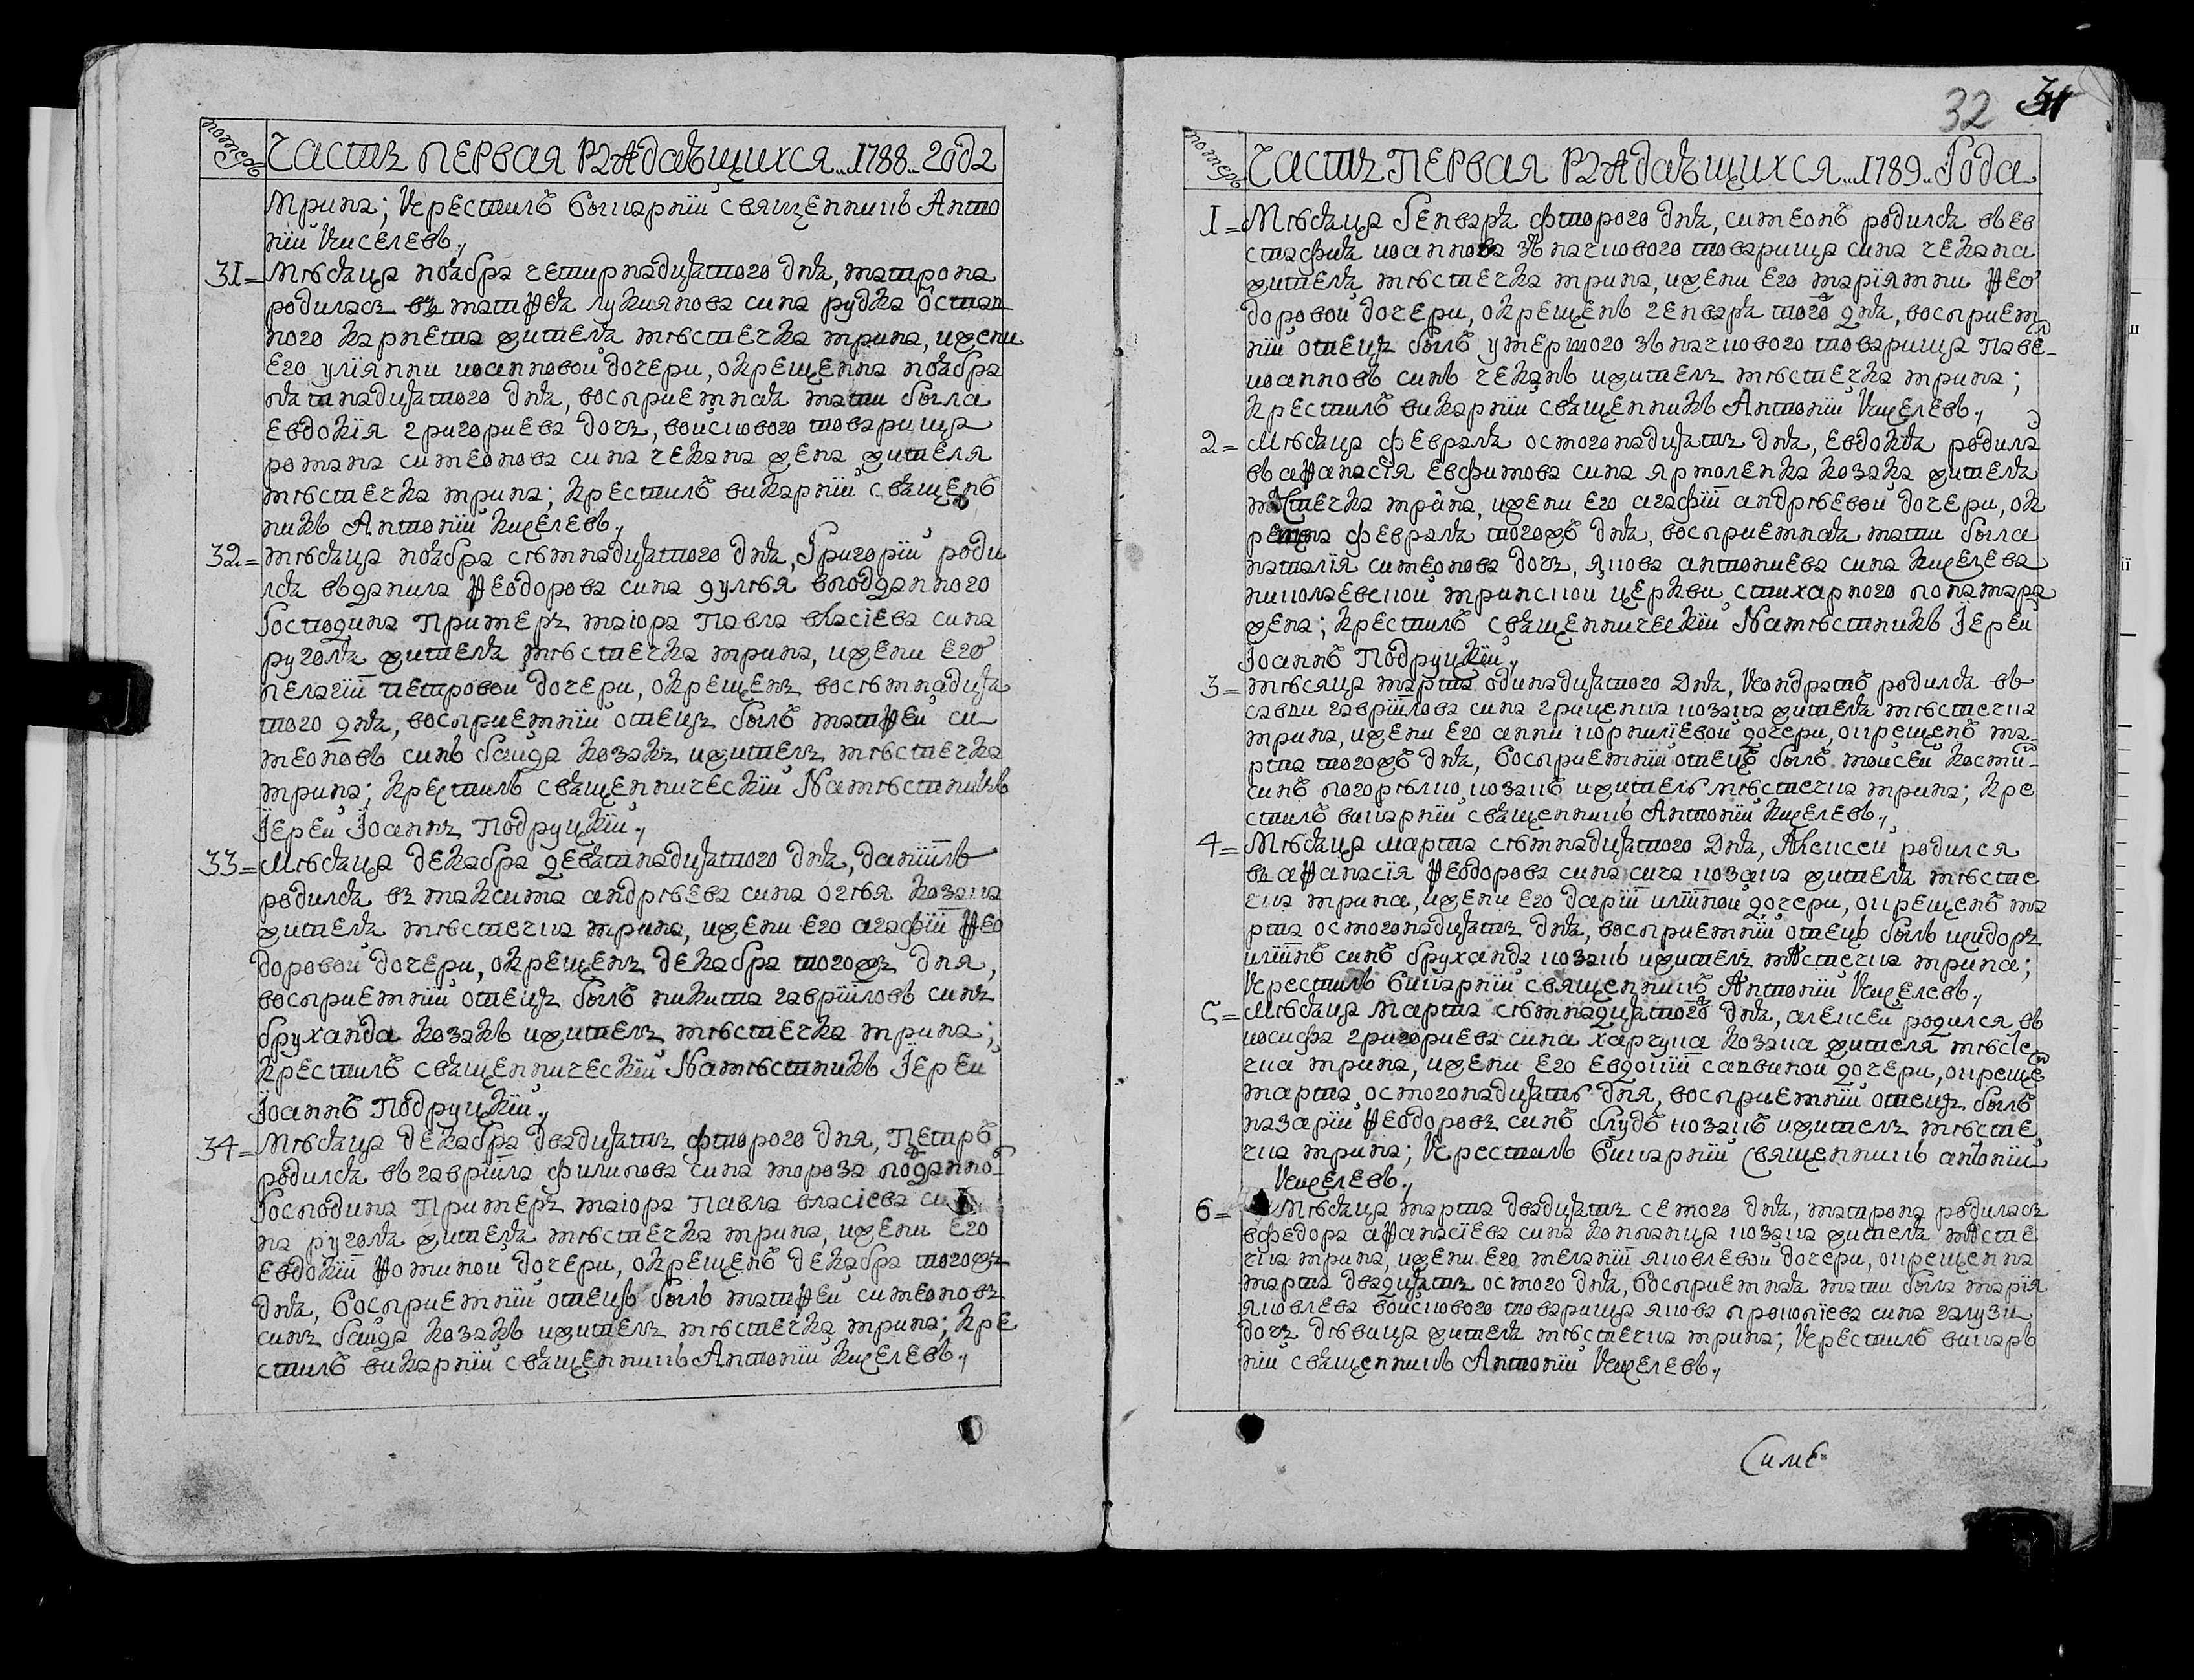 номеръ
Часть первая раждающихся...1788..года
Мрина; Крестилъ викарнїи священникъ Анто
нїи Киселевъ.,
31= Мѣсѧца ноѧбра четирнадцѧтого днѧ, матрона
родилась въ матѳеѧ лукиянова сина рудка остан
ного карнета жителѧ мѣстечка мрина, ижени
его улїянни иоанновои дочери, окрещенна ноѧбра
пѧтанадцѧтого днѧ, восприемнаѧ мати была
евдокїя григориева дочь, воискового товарища
романа симеонова сина чекана жена жителя
мѣстечка мрина; крестилъ викарнїи свѧщен
никъ Антонїи Киселевъ.,
32= мѣсѧца ноѧбра сѣмнадцѧтого днѧ, Григорїи роди
лсѧ въ данила ѳеодорова сина дулѣя вподданного
Господина Примеръ маїора Павла власїева сина
руголѧ жителѧ мѣстечка мрина, ижени его
пелагїи петровои дочери, окрещенъ восѣмнадцѧ
того днѧ, восприемнїи отецъ былъ матѳеи си
меоновъ синъ баида козакъ ижитель мѣстечка
мрина; крестилъ свѧщенническїи Намѣстникъ
Їереи Їоаннъ Подруцкїи.,
33= Мѣсѧца декабра девѧтнадцѧтого днѧ, данїилъ
родилсѧ въ максима андрѣева сина огѣя козака
жителѧ мѣстечка мрина, ижени его агафїи ѳео
доровои дочери, окрещенъ декабра тогожъ дня,
восприемнїи отецъ былъ никита гаврїиловъ синъ
бруханда козакъ ижитель мѣстечка мрина;
крестилъ свѧщенническїи Намѣстникъ Їереи
Їоаннъ Подруцкїи.,
34= Мѣсѧца декабра двадцѧть фторого дня, Петръ
родилсѧ въ гаврїила филипова сина мороза подданно
Господина Примеръ маїора Павла власїева си
на руголѧ жителѧ мѣстечка мрина, ижени его
евдокїи ѳоминои дочери, окрещенъ декабра тогожъ
днѧ, восприемнїи отецъ былъ матѳеи симеоновъ
синъ баида козакъ ижитель мѣстечка мрина; кре
стилъ викарнїи свѧщенникъ Антонїи Киселевъ.,
32
номеръ
Часть Первая раждающихся...1789..Года
1= Мѣсѧца Генварѧ фторого днѧ, симеонъ родилсѧ въ ев
стафиѧ иоаннова зъначкового товарища сина чекана
жителѧ мѣстечка мрина, ижени его марїямни ѳео
доровои дочери, окрещенъ генварѧ того днѧ, восприем
нїи отецъ былъ умершого зъначкового товарища паве
иоанновъ синъ чеканъ ижитель мѣстечка мрина;
крестилъ викарнїи свѧщенникъ Антонїи Киселевъ.,
2= Мѣсѧца февралѧ осмогонадцѧть днѧ, евдокѧ родила
въ аѳанасїя евфимова сина ярмоленка козака жителѧ
мѣстечка мрина, ижени его агафїи андрѣевои дочери, ок
рещена февралѧ тогожъ днѧ, восприемнаѧ мати была
наталїя симеонова дочь, якова антониева сина киселева
николаевскои мринскои церкви стихарного понамара
жена; крестилъ свѧщенническїи Намѣстникъ Їереи
Їоаннъ Подруцкїи.,
3= мѣсяца марта одинадцѧтого днѧ, Кондратъ родилсѧ въ
савви гаврїилова сина гриценка козака жителѧ мѣстечка
мрина, ижени его анни корнилїевои дочери, окрещенъ ма
рта тогожъ днѧ, восприемнїи отецъ былъ моисеи косми
синъ погорѣлко козакъ ижитель мѣстечка мрина; кре
стилъ викарнїи свѧщенникъ Антонїи Киселевъ.,
4= Мѣсѧца марта сѣмнадцѧтого днѧ, Алексеи родился
въ аѳанасїя ѳеодорова сина сича козака жителѧ мѣстеч
чка мрина, ижени его дарїи илїинои дочери, окрещенъ ма
рта осмогонадцѧть днѧ, восприемнїи отецъ былъ исидоръ
илїинъ синъ бруханда козакъ ижитель мѣстечка мрина;
Крестилъ викарнїи священникъ Антонїи Киселевъ.,
5= Мѣсѧца марта сѣмнадцѧтого днѧ, алексеи родился въ
иосифа григориева сина харчука козака жителя мѣсте
чка мрина, ижени его евдокїи саввинои дочери, окреще
марта осмогонадцѧть дня, восприемнїи отецъ былъ
назарїи ѳеодоровъ синъ блудъ козакъ ижитель мѣсте
чка мрина; Крестилъ викарнїи священникъ антонїи
Киселевъ.,
6= Мѣсѧца марта двадцѧть семого днѧ, матрона родилась
вфедора аѳанасїева сина конванца козака жителѧ мѣсте
чка мрина, ижени его меланїи яковлевои дочери, окрещенна
марта двадцѧть осмого днѧ, восприемнаѧ мати была марїя
яковлева воискового товарища якова прокопїева сина галузи
дочь дѣвица жителѧ мѣстечка мрина; Крестилъ викаръ
нїи свѧщенникъ Антонїи Киселевъ.,